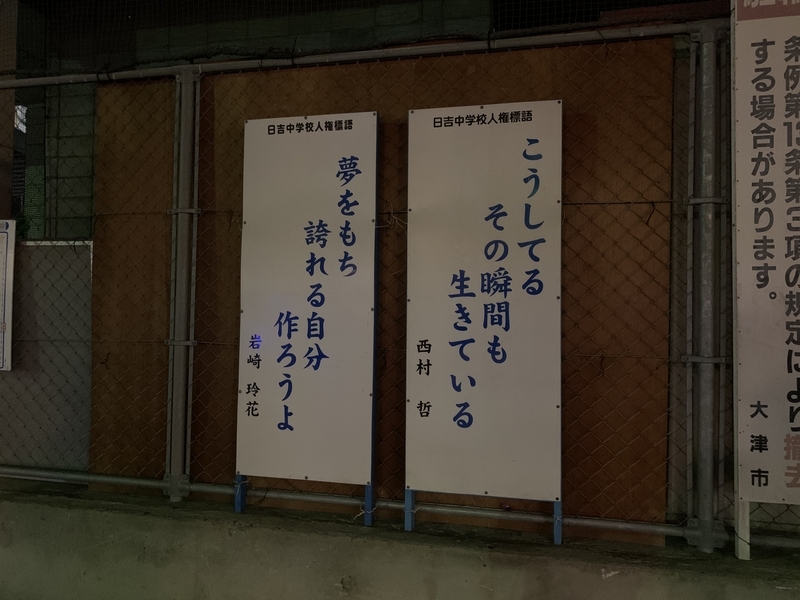 日吉中学校人権標語
夢をもち
誇れる自分
作ろうよ
岩崎 玲花
日吉中学校人権標語
こうしてる
その瞬間も
生きている
西村 哲
条例第15条第3項の規定により撤去
する場合があります。
大津市